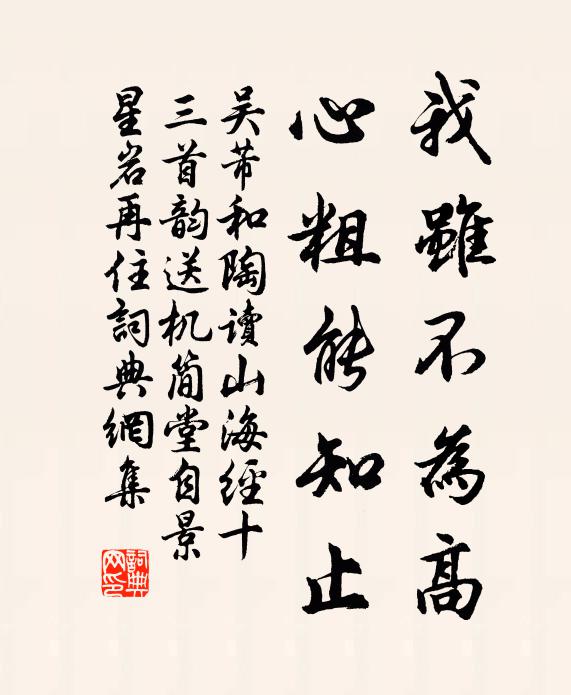 我雖不為高
心粗能知止
吴芾和陶讀山海經十
三首韵送机简堂自景
星岩再住詞典網集
詞典网印